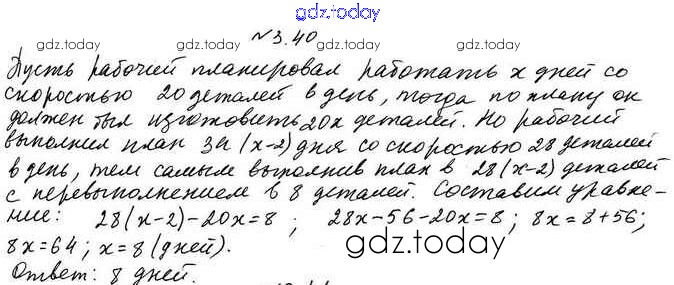 gdz.today
№3.40
gdz.today gdz.today gdz.today
Пусть рабочий планировал работать x дней со
скоростью 20 деталей в день, тогда по плану он
должен был изготовить 20x деталей. Но рабочий
выполнил план за (x-2) дня со скоростью 28 деталей
в день, тем самым выполнив план в 28(x-2) деталей
с перевыполнением в 8 деталей. Составим уравне-
ние: 28(x-2)-20x=8 ; 28x-56-20x=8 ; 8x=8+56;
8x=64 ; x=8 (дней).
gdz.today
Ответ: 8 дней.